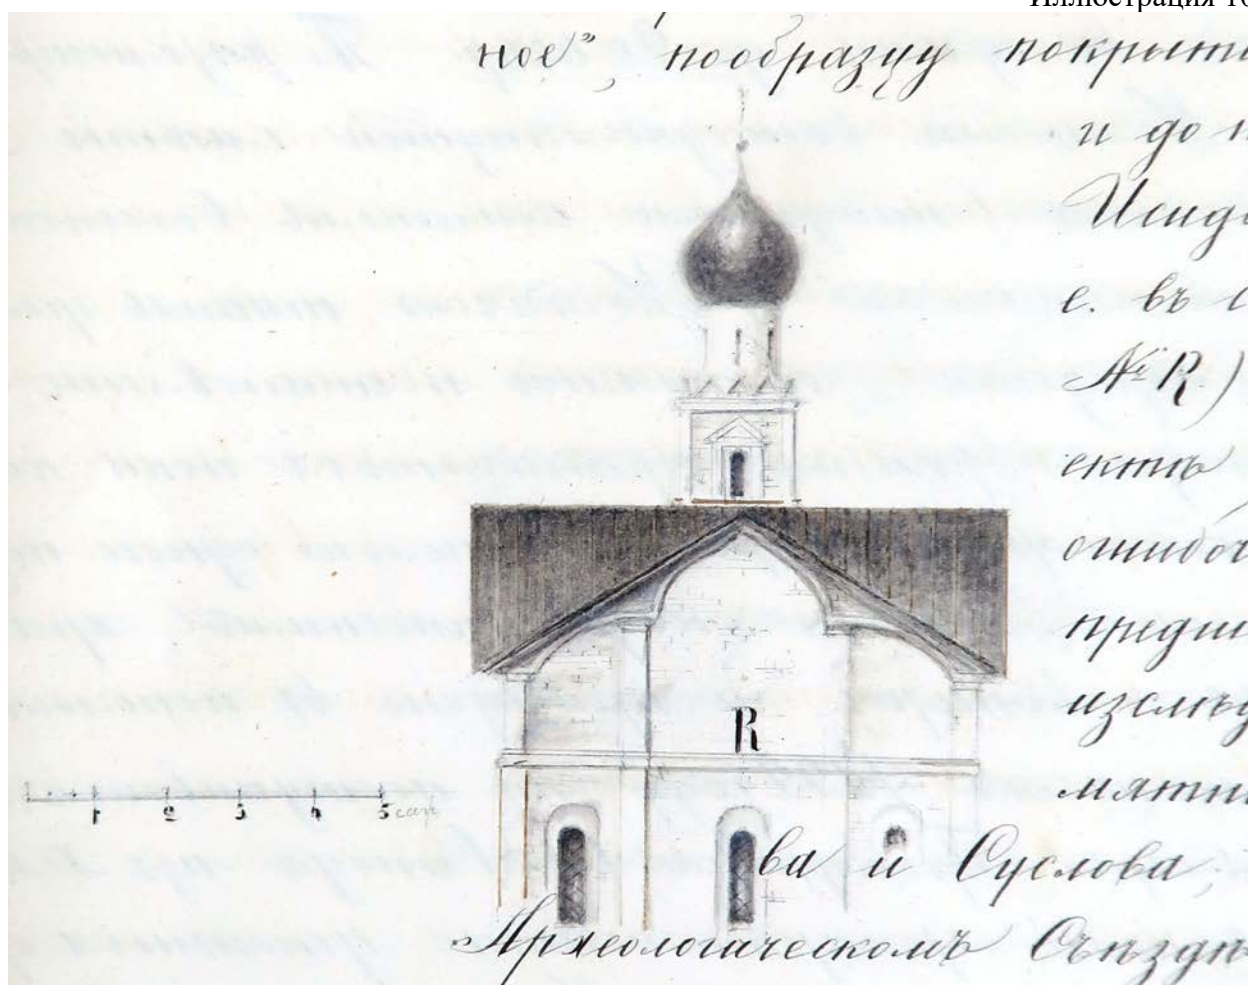 Иллюстрация 10
ное", пообразцу покрыти
и до н
Исидо
е. въ с
№ R)
ектъ
ошибоч
предш
изслѣд
R
мятни
1 2 3 4 5 саж
ва и Суслова,
Археологическомъ Съѣздѣ